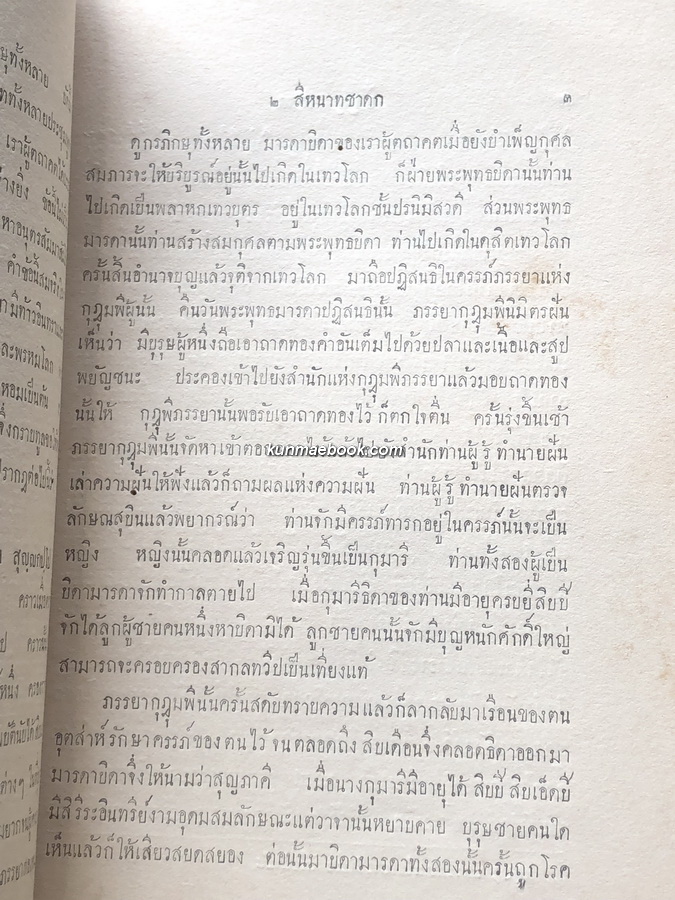 ๒ สีหนาทชาดก ๓
ดูกรภิกษุทั้งหลาย มารดาบิดาของเราผู้ตถาคตเมื่อยังบำเพ็ญกุศล
สมภารจะให้บริบูรณ์อยู่นั้นไปเกิดในเทวโลก ก็ฝ่ายพระพุทธบิดานั้นท่าน
ไปเกิดเป็นพลาหกเทวบุตร อยู่ในเทวโลกชั้นปรนิมิสวดี ส่วนพระพุทธ
มารดานั้นท่านสร้างสมกุศลตามพระพุทธบิดา ท่านไปเกิดในดุสิตเทวโลก
ครั้นสิ้นอำนาจบุญแล้วจุติจากเทวโลก มาถือปฏิสนธิในครรภ์ภรรยาแห่ง
กุฎุมพีผู้นั้น คืนวันพระพุทธมารดาปฏิสนธินั้น ภรรยากุฎุมพีนิมิตรฝัน
เห็นว่า มีบุรุษผู้หนึ่งถือเอาถาดทองคำอันเต็มไปด้วยปลาและเนื้อและสูป
พยัญชนะ ประคองเข้าไปยังสำนักแห่งกุฎุมพีภรรยาแล้วมอบถาดทอง
นั้นให้ กุฎุมพีภรรยานั้นพอรับเอาถาดทองไว้ ก็ตกใจตื่น ครั้นรุ่งขึ้นเช้า
ภรรยากุฎุมพีนั้นจัดหาเข้าตอง สำนักท่านผู้รู้ ทำนายฝัน
kunmaebook.com
เล่าความฝันให้ฟังแล้วก็ถามผลแห่งความฝัน ท่านผู้รู้ ทำนายฝันตรวจ
ลักษณสุบินแล้วพยากรณ์ว่า ท่านจักมีครรภ์ทารกอยู่ในครรภ์นั้นจะเป็น
หญิง หญิงนั้นคลอดแล้วเจริญรุ่นขึ้นเป็นกุมารี ท่านทั้งสองผู้เป็น
บิดามารดาจักทำกาลตายไป เมื่อกุมารีธิดาของท่านมีอายุครบยี่สิบปี
จักได้ลูกผู้ชายคนหนึ่งหาบิดามิได้ ลูกชายคนนั้นจักมีบุญหนักศักดิ์ใหญ่
สามารถจะครอบครองสากลทวีปเป็นเที่ยงแท้
ภรรยากุฎุมพีนั้นครั้นสดับทราบความแล้วก็ลากลับมาเรือนของตน
อุตส่าห์รักษาครรภ์ของตนไว้ จนตลอดถึงสิบเดือนจึ่งคลอดธิดาออกมา
มารดาบิดาจึ่งให้นามว่าสุญภาคี เมื่อนางกุมารีมีอายุได้ สิบปี สิบเอ็ดปี
มีสิริระอินทรีย์งามอุดมสมลักษณะแต่วาจานั้นหยาบคาย บุรุษชายคนใด
เห็นแล้วก็ให้เสียวสยดสยอง ต่อนั้นมาบิดามารดาทั้งสองนั้นครั้นถูกโรค